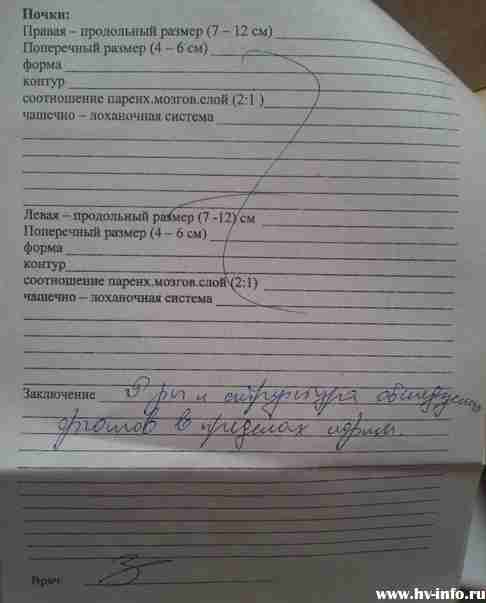 Почки:
Правая – продольный размер (7 – 12 см)
Поперечный размер (4 – 6 см)
форма
контур
соотношение паренх.мозгов.слой (2:1 )
чашечно – лоханочная система
Левая – продольный размер (7 -12) см
Поперечный размер (4 – 6 см)
форма
контур
соотношение паренх.мозгов.слой (2:1)
чашечно – лоханочная система
Заключение Р-ры и структура обследуемых
органов в пределах нормы.
Врач
www.hv-info.ru